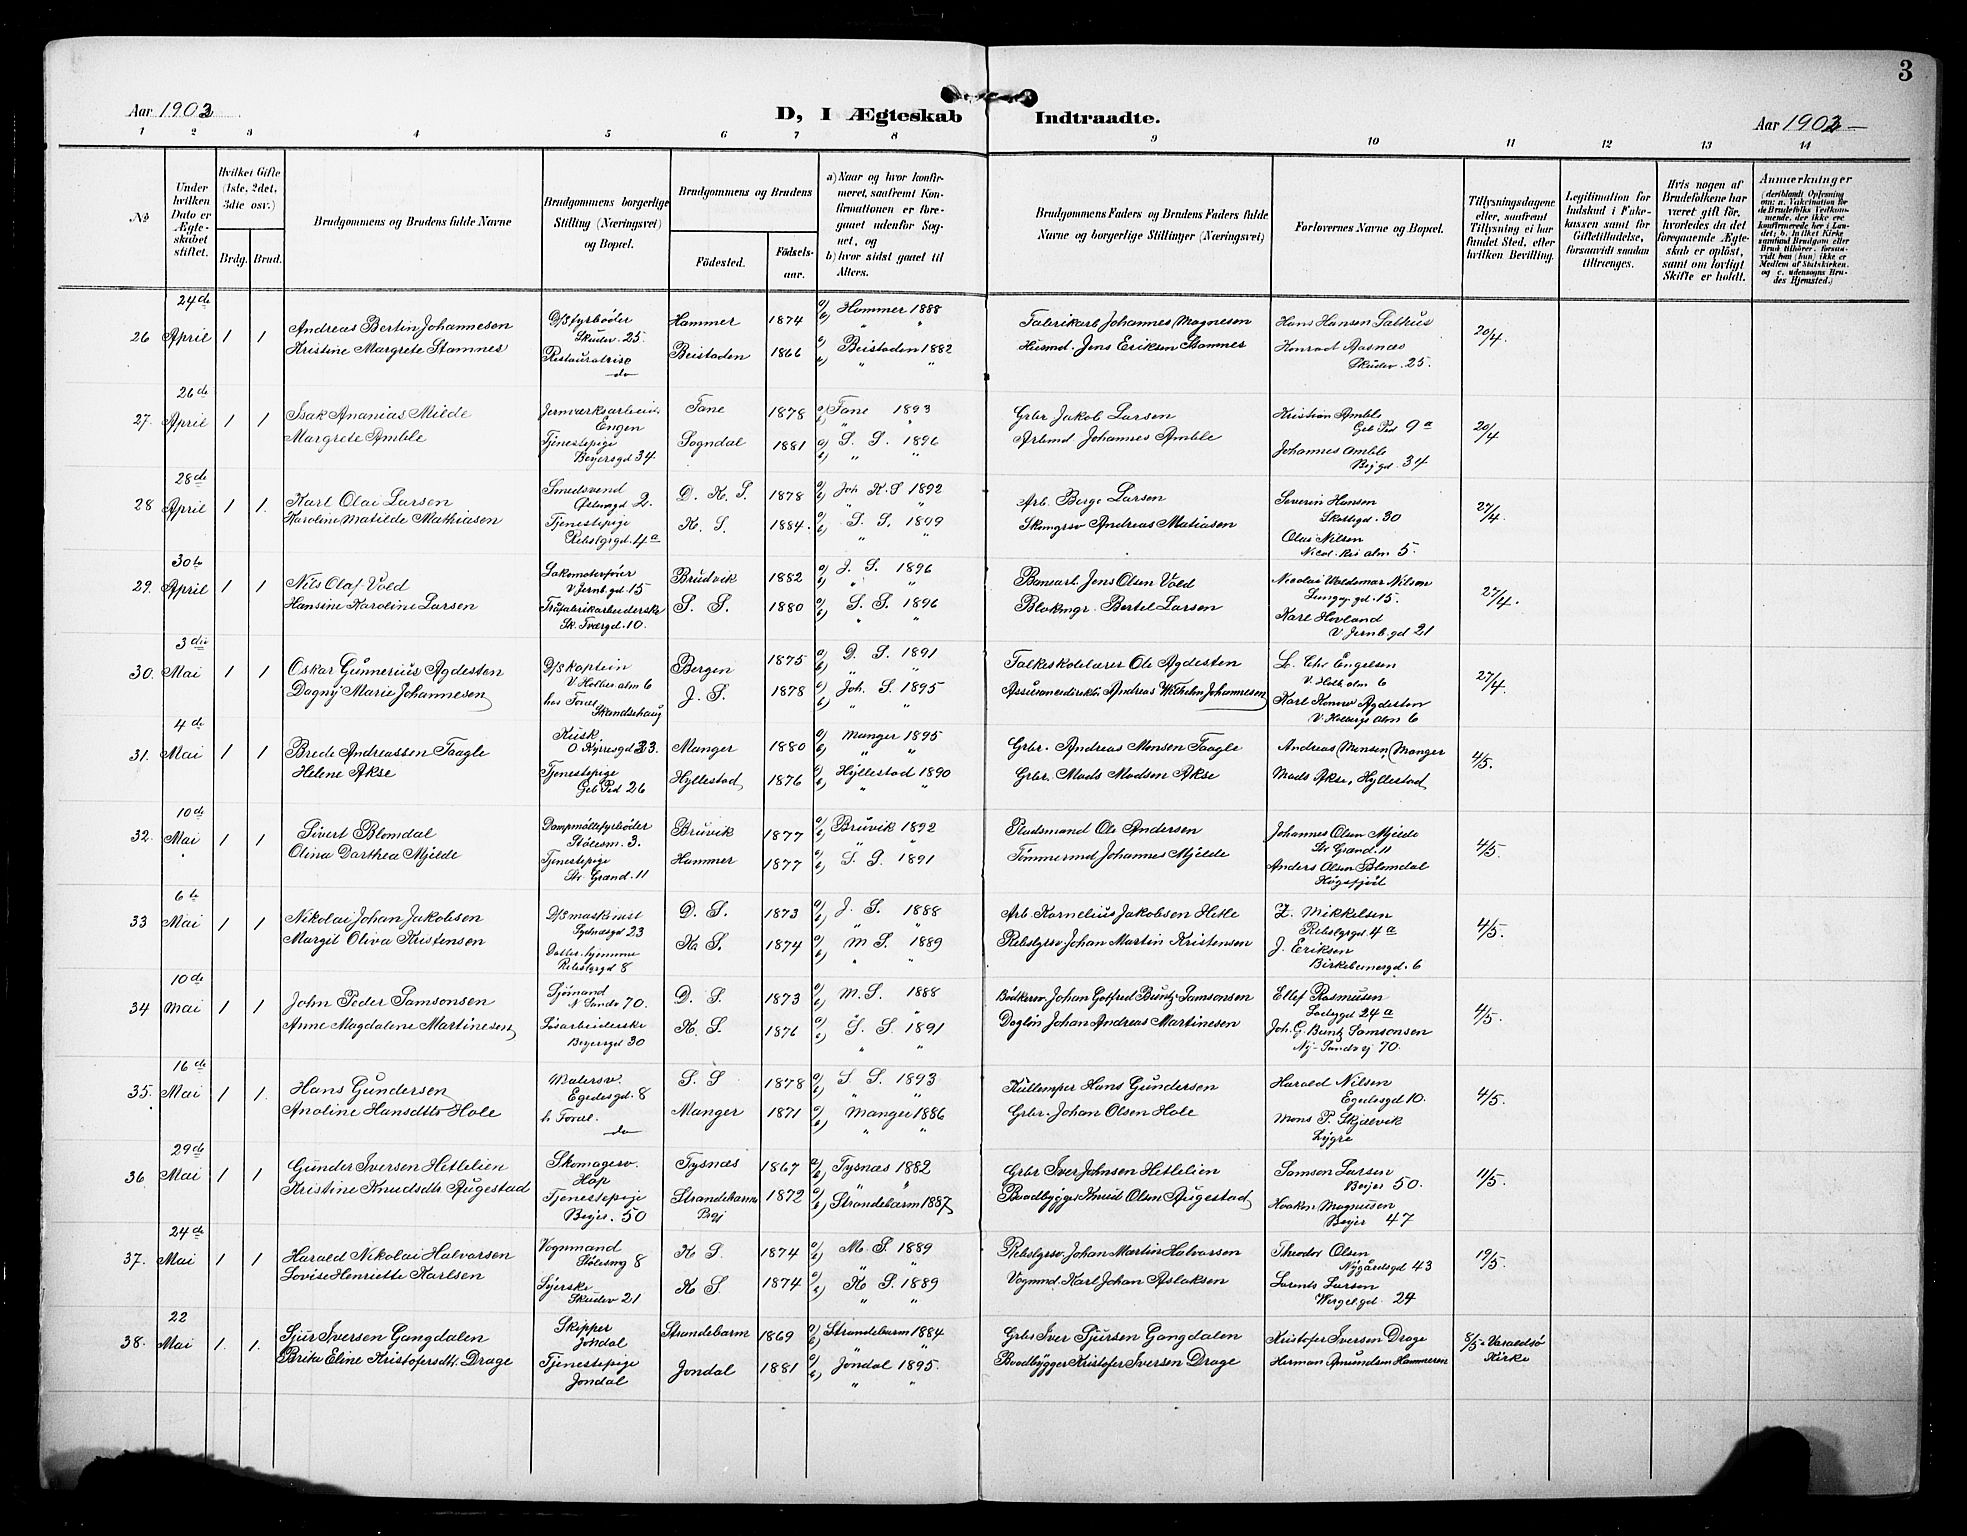 3
Aar 1903
D, I Ægteskab Indtraadte.
Aar 1903
1 2 3 4 5 6 7 8 9 10 11 12 13 14
№
Under hvilken Dato er Ægteskabet stiftet.
Hvilket Gifte (1ste, 2det, 3die osv.)
Brdg. Brud.
Brudgommens og Brudens fulde Navne
Brudgommens borgerlige Stilling (Næringsvei) og Bopæl.
Brudgommens og Brudens
Fødested. Fødselsaar.
a) Naar og hvor konfirmeret, saafremt Konfirmationen er foregaaet udenfor Sognet, og
b) hvor sidst gaaet til Alters.
Brudgommens Faders og Brudens Faders fulde Navne og borgerlige Stillinger (Næringsvei)
Forlovernes Navne og Bopæl.
Tillysningsdagene eller, saafremt Tillysning ei har fundet Sted, efter hvilken Bevilling.
Legitimation for Indskud i Enkekassen samt for Giftetilladelse, forsaavidt saadan tiltrænges.
Hvis nogen af Brudefolkene har været gift før, hvorledes da det foregaaende Ægteskab er opløst, samt om lovligt Skifte er holdt.
Anmærkninger
26 24de April 1 1 Andreas Bertin Johannesen D/S fyrbøder Skudev. 25 Hammer 1874 a/ Hammer 1888 Fabrikarb Johannes Magnesen Hans Hansen Salhus 20/4
Kristine Margrete Stamnes Beistaden 1866 a/ Beistaden 1882 Husmd. Jens Eriksen Stamnes Konrad Aasnæs Skudev. 25.
27. 26de April 1 1 Isak Ananias Milde Jernværksarbeid. Engen Fane 1878 a/ Fane 1893 Grbr Jakob Larsen Kristian Amble Geb Ped 9a 20/4
Margrete Amble Tjenestepige Beyersgd 34 Sogndal 1881 a/ S. S. 1896 Arbmd Johannes Amble Johannes Amble 34
28 28de April 1 1. Karl Olai Larsen Smedsvend D. K. S. 1878 a/ Joh K. S 1892 Arb. Berge Larsen Severin Hansen Skottegd. 30 27/4
Karoline Matilde Mathiasen Tjenestepige Rebslgrgd. 4a K. S. 1884. a/ S. S. 1899 Skomgrsv Andreas Matiasen Olai Nilsen Nicol. Kr alm 5.
29. 30te April 1 1 Nils Olaf Vold Lokomotivfører V Jernb. gd 15 Brudvik 1882 a/ J. S. 1896 Banearb. Jens Olsen Vold Nicolai Waldemar Nilsen 15. 27/4.
Hansine Karoline Larsen S. S. 1880 a/ S. S. 1896 Blokmgr. Bertel Larsen Karl Hovland V. Jernb. gd 21
Sk. Tværgd. 10.
30. 3die Mai 1 1 Oskar Gunnerius Agdesten D/S kaptein V Holber alm 6 Bergen 1875 a/ D. S. 1891 Folkeskolelærer Ole Agdesten L. Chr Engelsen V. Holb alm 6 27/4
Dagny Marie Johannesen hos Foræl. Skandsehaug J. S. 1878 a/ Joh. S. 1895 Assurancedirektør Andreas Wilhelm Johannesen Karl Konow Agdesten V. Holbergs alm 6
31. 4de Mai 1 1 Brede Andreassen Taagle Kusk O. Kyrresgd 23. Manger 1880 a/ Manger 1895 Grbr. Andreas Monsen Taagle Andreas Monsen, Manger 4/5.
Helene Akse Tjenestepige Geb Ped 26 Hyllestad 1876 a/ Hyllestad 1890 Grbr. Mads Madsen Akse Mads Akse, Hyllestad
32. 10de Mai 1 1 Sivert Blomdal Dampmøllefyrbøder Stølesm. 3. Bruvik 1877 a/ Bruvik 1892 Pladsmand Ole Andersen Johannes Olsen Mjelde Str Grænd. 11 4/5.
Olina Darthea Mjelde Tjenestepige Str. Grænd. 11 Hammer 1877 a/ S. S. 1891 Tømmermd Johannes Mjelde Anders Olsen Blomdal
33 6te Mai 1 1 Nikolai Johan Jakobsen D/S maskinist Sydnæsgd 23 D. S. 1873 a/ J. S. 1888 Arb. Kornelius Jakobsen Hetle Z. Mikkelsen Rebslgrgd 4a 4/5.
Margit Oliva Kristensen Datter hjemme Rebslgrgd 8 K. S. 1874 a/ M S. 1889 Rebslgrsv. Johan Martin Kristensen J. Eriksen Birkebeinergd. 6
34 10de Mai 1 1 John Peder Samsonsen Sjømand N Sandv 70. D. S. 1873 a/ M. S. 1888 Bødkersv. Johan Gotfred Buntz Samsonsen Ellef Rasmusen 24a 4/5.
Anne Magdalene Martinesen Beyersgd 30 K. S. 1876 a/ S. S. 1891 Dagløn. Johan Andreas Martinesen Joh. G. Buntz Samsonsen Ny-Sandv vj 70.
35. 16de Mai 1 1. Hans Gundersen Malersv. Egedesgd. 8 S. S 1878 a/ S S. 1893 Kullemper Hans Gundersen Harald Nilsen Egedesgd 10. 4/5.
Anoline Hansdttr Hole h Foræl. do Manger 1871 a/ Manger 1886 Grbr. Johan Olsen Hole Mons P. Skjælvik Lygre
36 29de Mai 1 1 Gunder Iversen Hetlelien Skomagersv. Hop Tysnæs 1867 a/ Tysnæs 1882 Grbr Iver Johnsen Hetlelien Samson Larsen Beyer 50. 4/5.
Kristine Knudsdtr Augestad Tjenestepige Beyer. 50 Strandebarm 1872 a/ Strandebarm 1887 Brodbygger Knud Olsen Augestad Haakon Magnusen Beyer 47
37. 24de Mai 1 1 Harald Nikolai Halvorsen Vognmand Stølesmg 8 K S. 1874 a/ M. S. 1889 Rebslgrsv. Johan Martin Halvorsen Theodor Olsen Nygårdsgd 43 19/5.
Lovise Henriette Karlsen Syerske Skudev 21 K S. 1874 a/ K S. 1889 Vognmd. Karl Johan Aslaksen Larents Larsen Wergel. gd. 24
38. 22 Mai 1. 1. Sjur Iversen Gangdalen Skipper Jondal Strandebarm 1869 a/ Strandebarm 1884 Grbr Iver Sjursen Gangdalen Kristofer Iversen Drage 8/5 - Varaldsø Kirke
Brita Eline Kristofersdtr. Drage Tjenestepige Jondal Jondal 1881 a/ Jondal 1895. Brodbygger Kristofer Iversen Drage Herman Amundsen Hammeren